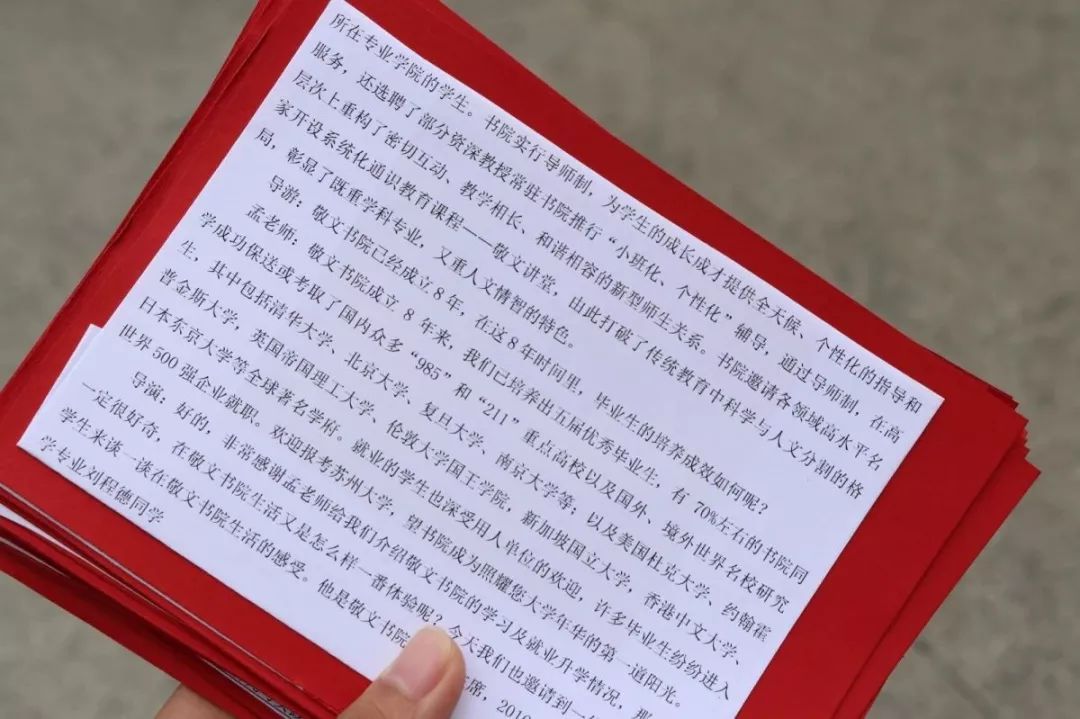 所在专业学院的学生。书院实行导师制，为学生的成长成才提供全天候、个性化的指导和
服务，还选聘了部分资深教授常驻书院推行“小班化、个性化”辅导，通过导师制，在高
层次上重构了密切互动、教学相长、和谐相容的新型师生关系。书院邀请各领域高水平名
家开设系统化通识教育课程——敬文讲堂，由此打破了传统教育中科学与人文分割的格
局，彰显了既重学科专业，又重人文情智的特色。
导游：敬文书院已经成立8年，在这8年时间里，毕业生的培养成效如何呢？
孟老师：敬文书院成立 8 年来，我们已培养出五届优秀毕业生，有 70%左右的书院同
学成功保送或考取了国内众多“985”和“211”重点高校以及国外、境外世界名校研究
生，其中包括清华大学、北京大学、复旦大学、南京大学等；以及美国杜克大学、约翰霍
普金斯大学，英国帝国理工大学、伦敦大学国王学院，新加坡国立大学，香港中文大学、
日本东京大学等全球著名学府。就业的学生也深受用人单位的欢迎，许多毕业生纷纷进入
世界500强企业就职。欢迎报考苏州大学，望书院成为照耀您大学年华的第一道阳光。
导演：好的，非常感谢孟老师给我们介绍敬文书院的学习及就业升学情况，那
一定很好奇，在敬文书院生活又是怎么样一番体验呢？今天我们也邀请到一
学生来谈一谈在敬文书院生活的感受。他是敬文书院 席，201
学专业刘程德同学